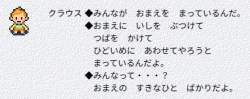 クラウス ◆みんなが おまえを まっているんだ。
◆おまえに いしを ぶつけて
つばを かけて
ひどいめに あわせてやろうと
まっているんだよ。
◆みんなって・・・?
おまえの すきなひと ばかりだよ。